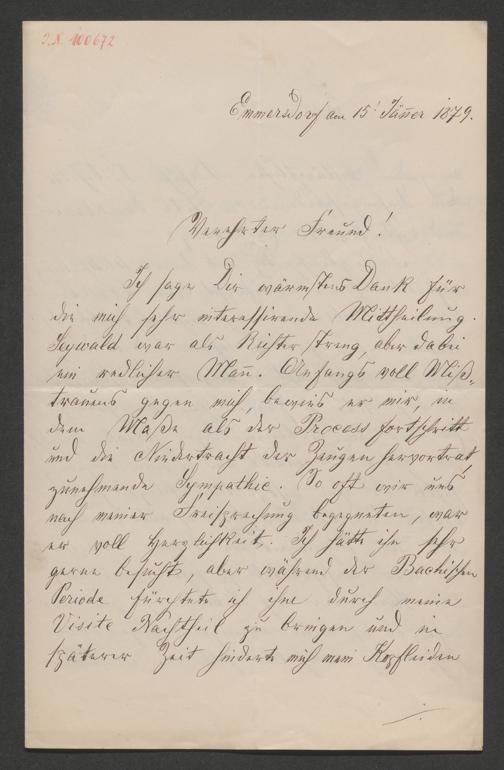 I.N. 100672
Emmersdorf am 15t Jäner 1879.
Verehrter Freund!
Ich sage Dir wärmstens Dank für
die mich sehr interessirende Mittheilung.
Seywald war als Richter streng, aber dabei
ein redlicher Mañ. Anfangs voll Miß=
trauens gegen mich, bewies er mir, in
dem Maße als der Process fortschritt
und die Niedertracht der Zeugen hervortrat,
zunehmende Sympathie. So oft wir uns
nach meiner Freisprechung begegneten, war
er voll Herzlichkeit. Ich hätte ihn sehr
gerne besucht, aber während der Bachischen
Periode fürchtete ich ihm durch meine
Visite Nachtheil zu bringen und in
späterer Zeit hinderte mich mein Kopfleiden